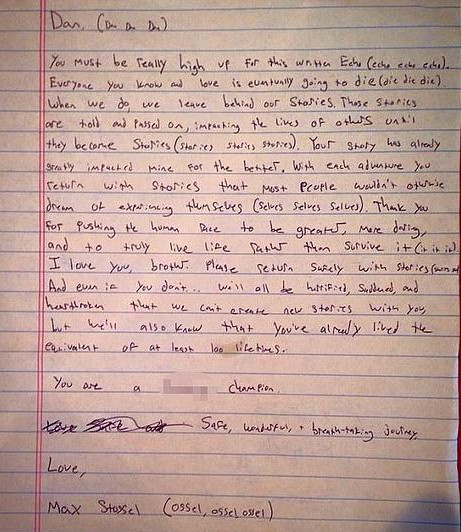 Dan, (Dan Dan Dan)
You must be really high up for this written Echo (echo echo echo).
Everyone you know and love is eventually going to die (die die die).
When we do, we leave behind our Stories. Those stories
are told and passed on, impacting the lives of others until
they become Stories (stories stories stories). Your story has already
greatly impacted mine for the better. With each adventure you
return with stories that most people wouldn't otherwise
dream of experiencing themselves (selves selves selves). Thank you
for pushing the human race to be greater, more daring,
and to truly live life rather than survive it (it it it).
I love you, brother. Please return safely with stories
And even if you don't... we'll all be horrified, saddened, and
heartbroken that we can't create new stories with you,
but we'll also know that you've already lived the
equivalent of at least 100 lifetimes.
You are a champion.
Safe, wonderful, + breath-taking journey
Love,
Max Stossel (ossel, ossel ossel)